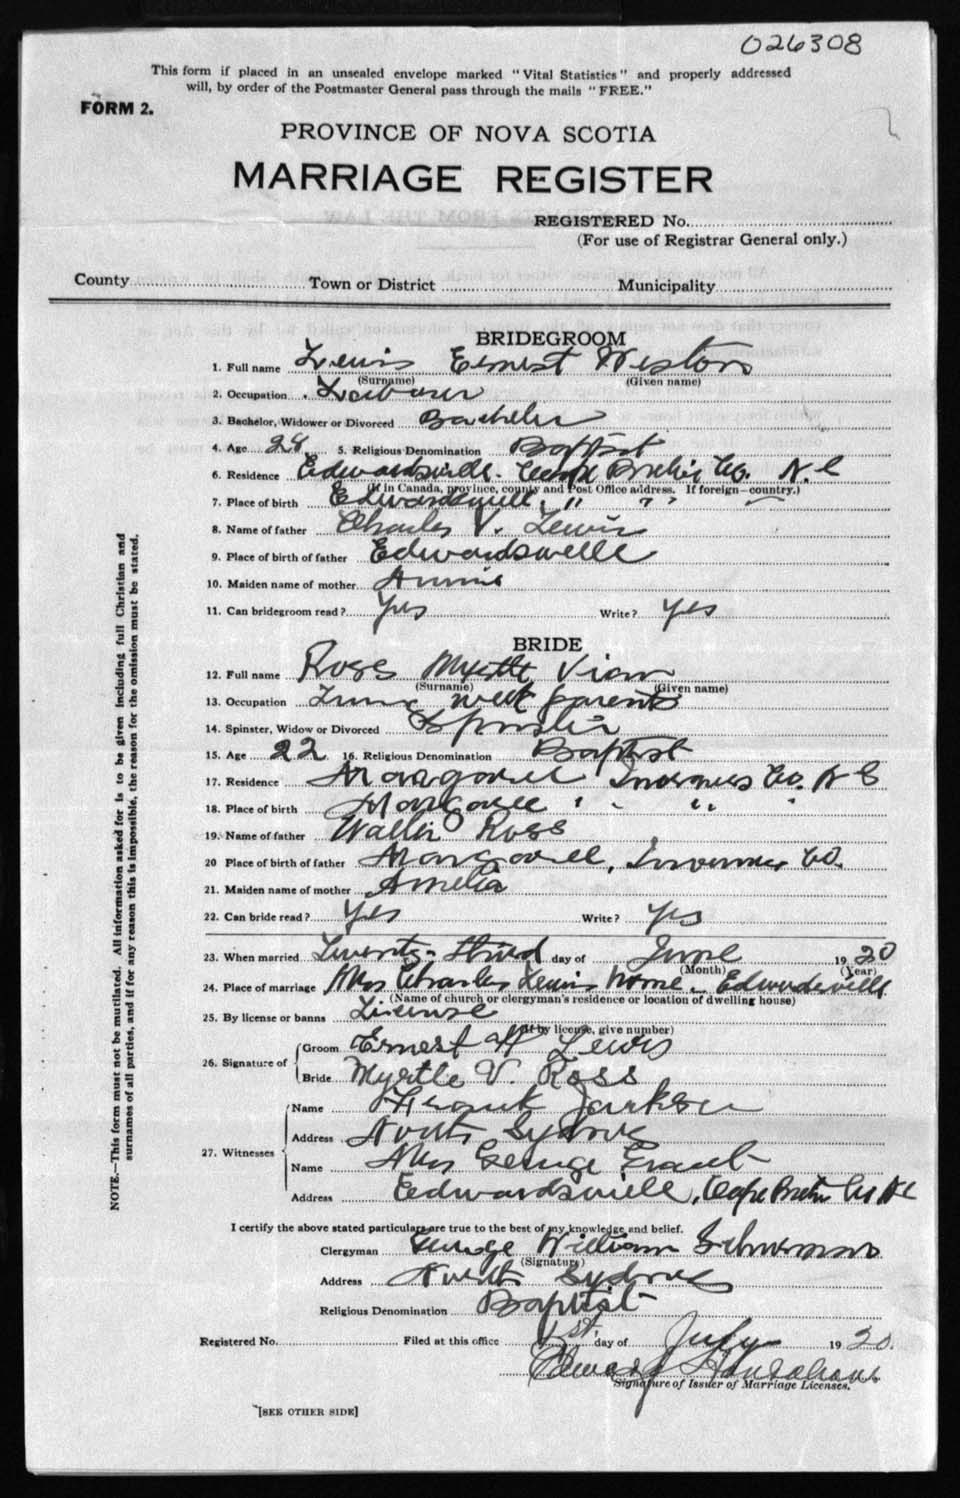 026308
This form if placed in an unsealed envelope marked "Vital Statistics" and properly addressed
will, by order of the Postmaster General pass through the mails "FREE."
FORM 2.
PROVINCE OF NOVA SCOTIA
MARRIAGE REGISTER
REGISTERED No.
(For use of Registrar General only.)
County Town or District Municipality
BRIDEGROOM
1. Full name Lewis Ernest Weston
(Surname) (Given name)
2. Occupation Labourer
3. Bachelor, Widower or Divorced Bachelor
4. Age 28 5. Religious Denomination Baptist
6. Residence Edwardsville. Cape Breton Co. N.S
(If in Canada, province, county and Post Office address. If foreign—country.)
7. Place of birth Edwardsville, " " "
8. Name of father Charles V. Lewis
9. Place of birth of father Edwardsville
10. Maiden name of mother Annie
11. Can bridegroom read? Yes Write? Yes
BRIDE
12. Full name Ross Myrtle
(Surname) (Given name)
13. Occupation parents
14. Spinster, Widow or Divorced Spinster
15. Age 22 16. Religious Denomination Baptist
17. Residence Margaree Inverness Co. N S
18. Place of birth Margaree " " " "
19. Name of father Ross
20 Place of birth of father Margaree, Inverness Co.
21. Maiden name of mother Amelia
22. Can bride read? Yes Write? Yes
23. When married Twenty-third day of June 1920
(Month) (Year)
24. Place of marriage Mrs Charles Lewis Home. Edwardsville
(Name of church or clergyman's residence or location of dwelling house)
25. By license or banns License
(If by license, give number)
26. Signature of Groom Ernest W Lewis
Bride Myrtle V. Ross
27. Witnesses Name Frank Jackson
Address North Sydney
Name Mrs George Grant
Address Edwardsville, Cape Breton Co N S
I certify the above stated particulars are true to the best of my knowledge and belief.
Clergyman George William Schurman
(Signature)
Address North Sydney
Religious Denomination Baptist
Registered No. Filed at this office 1st. day of July 1920.
Edward
Signature of Issuer of Marriage Licenses.
[SEE OTHER SIDE]
NOTE.—This form must not be mutilated. All information asked for is to be given including full Christian and
surnames of all parties, and if for any reason this is impossible, the reason for the omission must be stated.